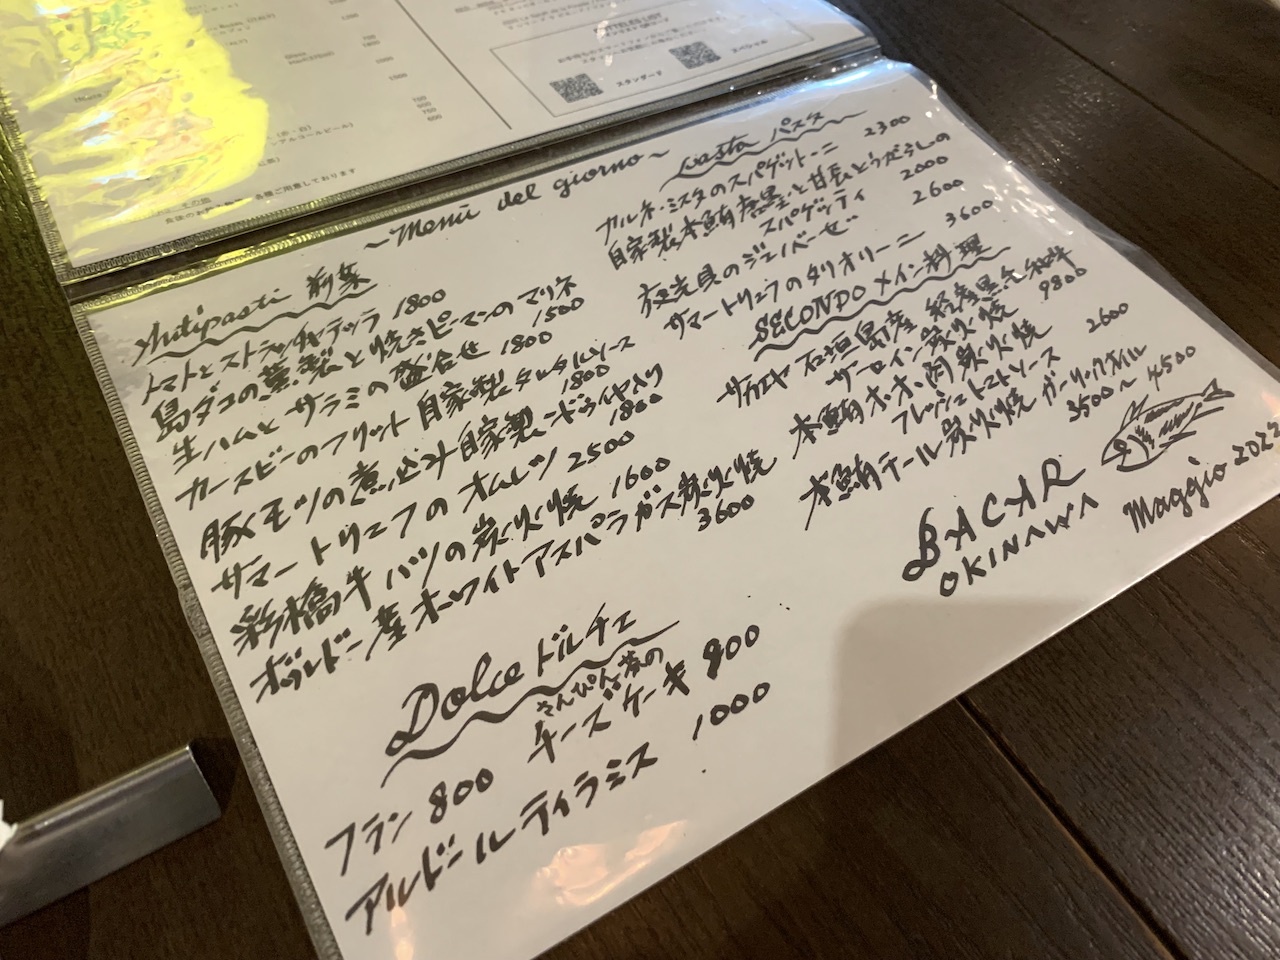 BOTTLES LIST
スタンダード
スペシャル
各種ご用意しております
~Menù del giorno~
Antipasti 前菜
トマトとストラッチャテッラ 1800
島ダコの薫製と焼きピーマンのマリネ
1500
生ハムとサラミの盛合せ 1800
カースビーのフリット自家製タルタルソース
1800
豚モツの煮込み自家製ンドゥイヤ入り
1800
サマートリュフのオムレツ 2500
牛ハツの炭火焼 1600
ボルドー産ホワイトアスパラガス炭火焼
3600
Pasta パスタ
カルネ・ミスタのスパゲットーニ 2300
自家製本鮪唐墨と甘長とうがらしの
スパゲッティ 2000
夜光貝のジェノベーゼ 2600
サマートリュフのタリオリーニ 3600
SECONDO メイン料理
石垣島産経産黒毛和牛
サーロイン炭火焼 9800
本鮪ホホ肉炭火焼
フレッシュトマトソース 2600
本鮪テール炭火焼ガーリックオイル
3500~4500
Dolce ドルチェ
さんぴん茶の
チーズケーキ 900
フラン 800
アルドールティラミス 1000
BACAR
OKINAWA
Maggio 2022